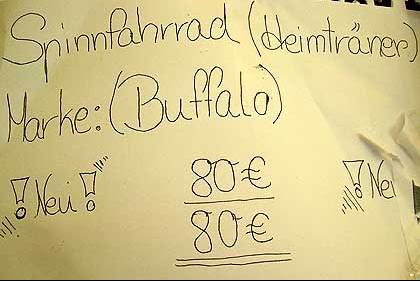 Spinnfahrrad (Heimträner)
Marke: (Buffalo)
! Neu ! 80 € ! Neu
80 €